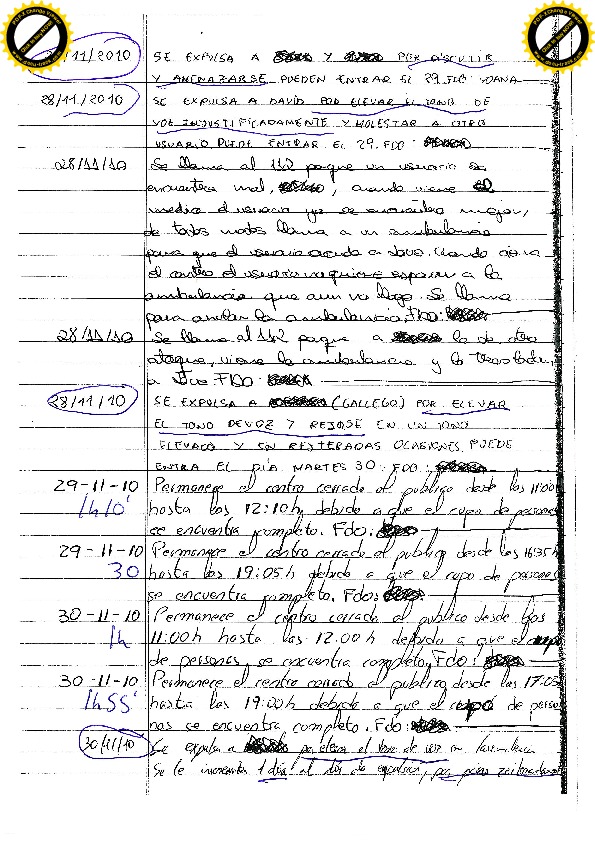 /11/2010 SE EXPULSA A Y POR DISCUTIR
Y AMENAZARSE PUEDEN ENTRAR EL 29. FDO:
28/11/2010 SE EXPULSA A DAVID POR ELEVAR EL TONO DE
VOZ INJUSTIFICADAMENTE Y MOLESTAR A OTRO
USUARIO PUEDE ENTRAR EL 29. FDO:
28/11/10 Se llama al 112 porque un usuario se
encuentra mal, , cuando viene el
medico el usuario ya se encuentra mejor,
de todos modos llama a un ambulancia
para que el usuario acuda a
el centro el usuario no quiere esperar a la
ambulancia que aun no llego. Se llama
para anular la ambulancia. FDO:
28/11/10 Se llama al 112 porque a le da otro
ataque, viene la ambulancia y lo traslada
a FDO:
28/11/10 SE EXPULSA A (GALLEGO) POR ELEVAR
EL TONO DE VOZ Y EN UN TONO
ELEVADO Y EN REITERADAS OCASIONES PUEDE
ENTRA EL DÍA MARTES 30. FDO:
29-11-10 Permanece el centro cerrado al publico desde las 11:00h
1h10' hasta las 12:10h, debido a que el cupo de personas
se encuentra completo. Fdo:
29-11-10 Permanece el centro cerrado al publico desde las 16:35h
30 hasta las 19:05h debido a que el cupo de personas
se encuentra completo. Fdo:
30-11-10 Permanece el centro cerrado al publico desde las
1h 11:00h hasta las 12:00h debido a que el cupo
de personas, se encuentra completo, Fdo:
30-11-10 Permanece el centro cerrado al publico desde las 17:05
1h55' hasta las 19:00h debido a que el cupo de perso
nas se encuentra completo. Fdo:
30/11/10 Se expulsa a por elevar el tono de voz
Se le incrementa 1 día al día de expulsión, por